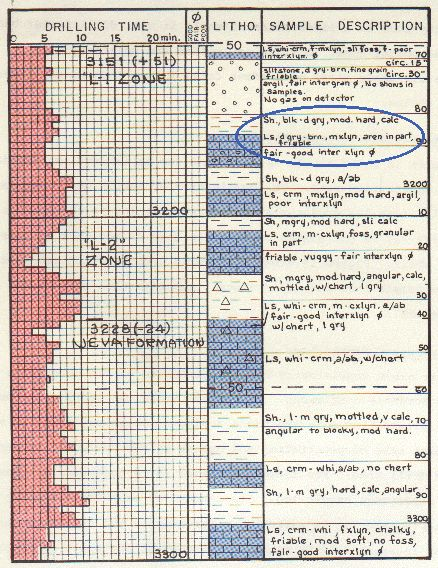 DRILLING TIME
5 10 15 20 min.
Ø
GOOD
FAIR
POOR
LITHO.
SAMPLE DESCRIPTION
3151 (+51)
"L-1" ZONE
50
Ls, whi-crm, f-mxlyn, sli foss, f-poor
interxlyn. Ø
70
circ. 15"
siltstone, d gry-brn, fine grain
circ. 30"
friable
argil, fair intergran Ø, No shows in
Samples.
No gas on detector
80
Sh, blk-d gry, mod. hard, calc
Ls, d gry-brn, mxlyn, aren in part,
friable
90
fair-good inter xlyn Ø
Sh, blk-d gry, a/ab
3200
Ls, crm, mxlyn, mod hard, argil,
poor interxlyn
3200
10
Sh, mgry, mod hard, sli calc
20
Ls, crm, m-cxlyn, foss, granular
in part
friable, vuggy-fair interxlyn Ø
"L-2"
ZONE
Sh, mgry, mod hard, angular, calc,
mottled, w/chert, l gry
30
Ls, whi-crm, m-cxlyn, a/ab
fair-good interxlyn Ø
40
w/chert, l gry
3228 (-24)
NEVA FORMATION
50
Ls, whi-crm, a/ab, w/chert
50
60
Sh., l-m gry, mottled, v calc,
70
angular to blocky, mod hard.
80
Ls, crm-whi, a/ab, no chert
Sh, l-m gry, hard, calc, angular
90
3300
Ls, crm-whi, fxlyn, chalky,
friable, mod soft, no foss,
fair-good interxlyn Ø
3300